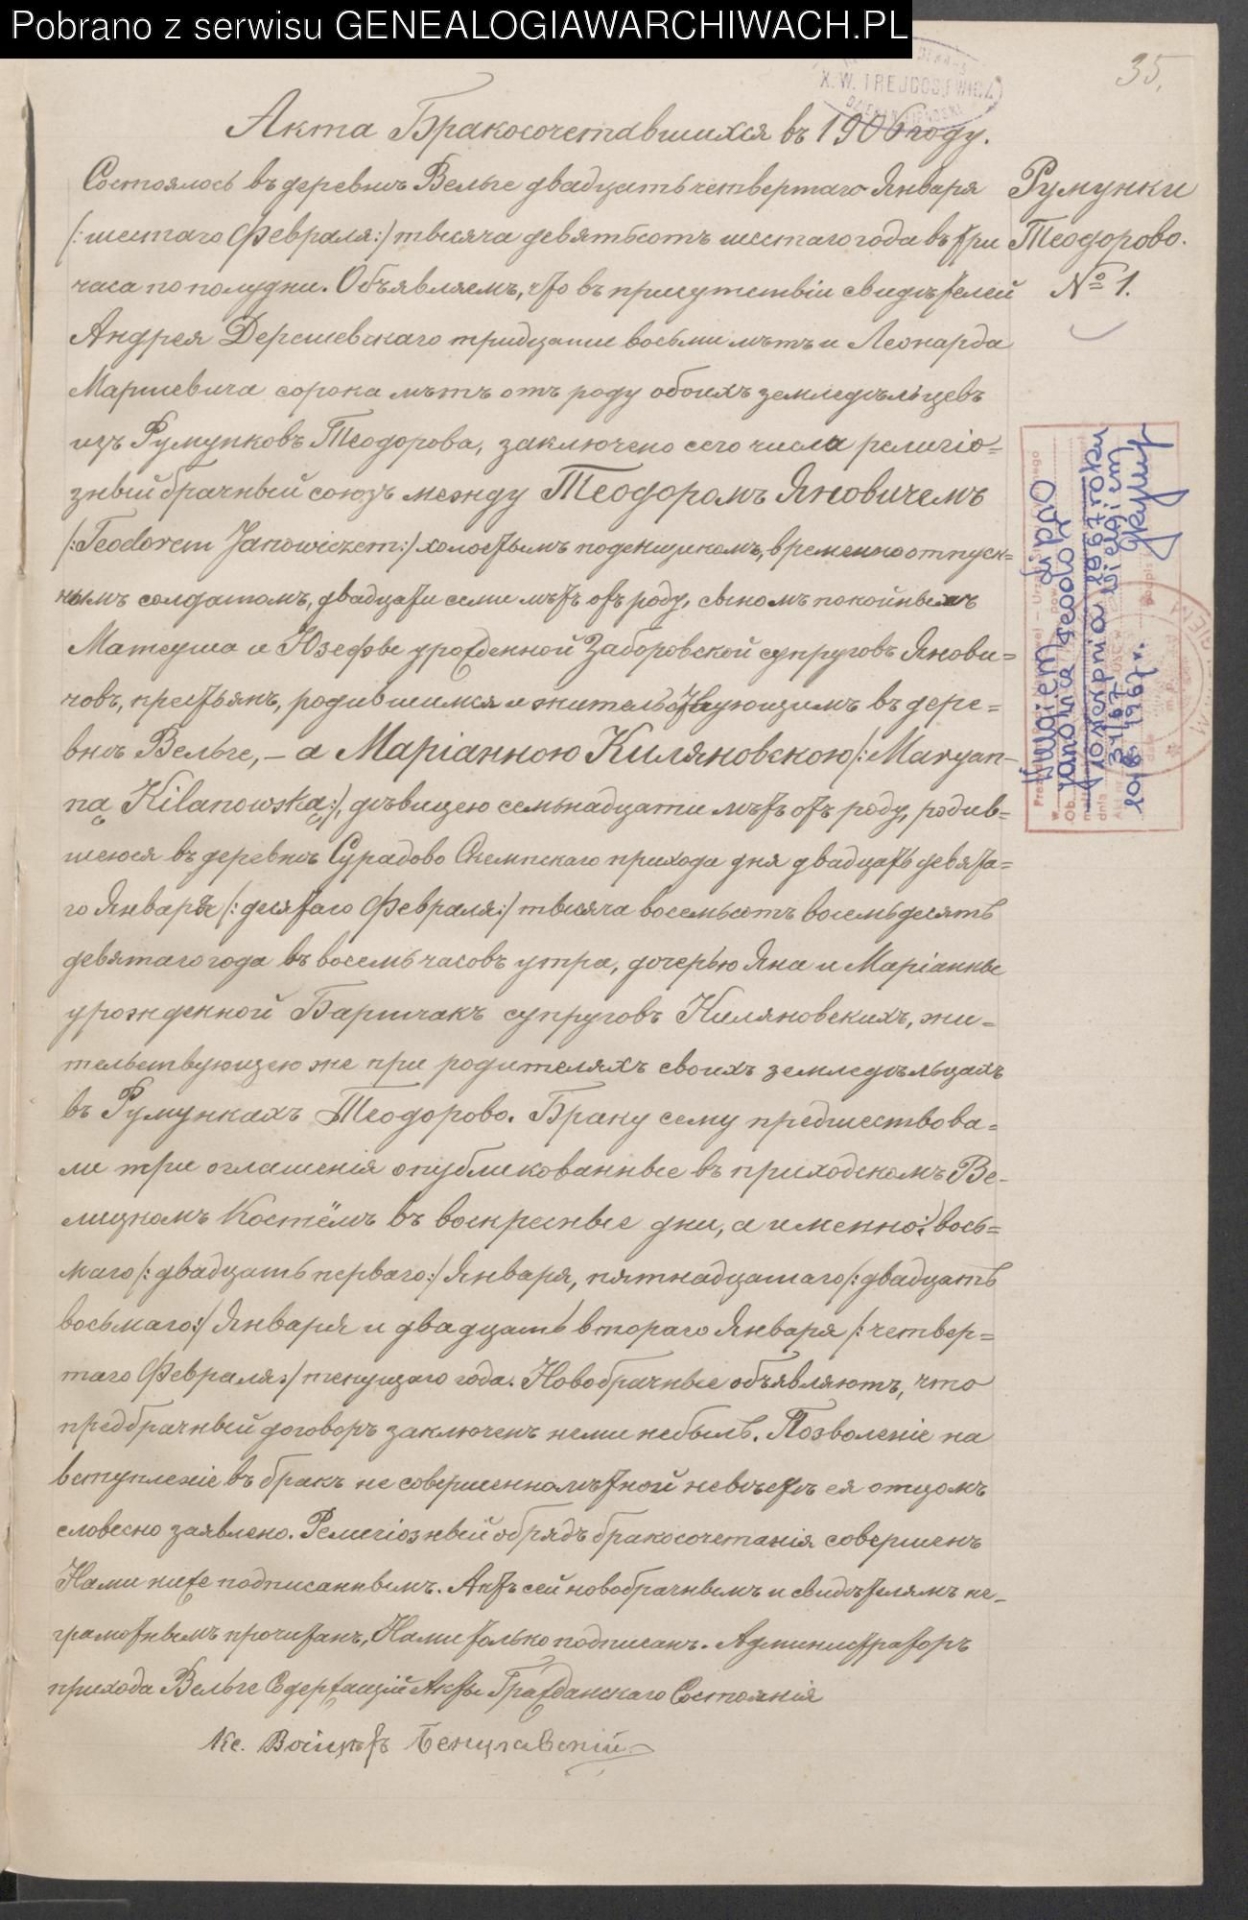 Pobrano z serwisu GENEALOGIAWARCHIWACH.PL
35.
X. W. TREJDOSIEWICZ
Акта Бракосочетавшихся въ 1906 году.
Румунки
Теодорово.
№ 1.
Состоялось въ деревнѣ Вельге двадцать четвертаго Января
/:шестаго Февраля:/ тысяча девятьсотъ шестаго года въ три
часа по полудни. Объявляемъ, что въ присутствіи свидѣтелей
Андрея Дерешевскаго тридцати восьми лѣтъ и Леонарда
Марцевича сорока лѣтъ отъ роду обоихъ земледѣльцевъ
изъ Румунковъ Теодорова, заключено сего числа религіо=
зный брачный союзъ между Теодоромъ Яновичемъ
/:Teodorem Janowiczem:/ холостымъ поденщикомъ, временноотпуск=
нымъ солдатомъ, двадцати семи лѣтъ отъ роду, сыномъ покойныхъ
Матеуша и Юзефы урожденной Заборовской супруговъ Янови=
човъ, крестьянъ, родившимся и жительствующимъ въ дере=
внѣ Вельге, – а Маріанною Киляновскою /:Maryan-
ną Kilanowską:/, дѣвицею семьнадцати лѣтъ отъ роду, родив=
шеюся въ деревнѣ Сурадово Скемпскаго прихода дня двадцать девята=
го Января /:десятаго Февраля:/ тысяча восемьсотъ восемьдесятъ
девятаго года въ восемь часовъ утра, дочерью Яна и Маріанны
урожденной Бартчакъ супруговъ Киляновскихъ, жи=
тельствующею же при родителяхъ своихъ земледѣльцахъ
въ Румункахъ Теодорово. Браку сему предшествова=
ли три оглашенія опубликованные въ приходскомъ Ве-
лицкомъ Костёлѣ въ воскресные дни, а именно: вось=
маго /:двадцать перваго:/ Января, пятнадцатаго /:двадцать
восьмаго:/ Января и двадцать втораго Января /:четвер=
таго Февраля:/ текущаго года. Новобрачные объявляютъ, что
предбрачный договоръ заключенъ неми небылъ. Позволеніе на
вступленіе въ бракъ не совершеннолѣтной невѣстѣ ея отцомъ
словесно заявлено. Религіозный обрядъ бракосочетанія совершенъ
Нами ниже подписаннымъ. Актъ сей новобрачнымъ и свидѣтелямъ не-
грамотнымъ прочитанъ, Нами только подписанъ. Администраторъ
прихода Вельге Содержащій Акты Гражданскаго Состоянія
Кс. Войцѣхъ
Janowicz Teodor
10 sierpnia 1967 roku
Wielgiem
31/67
10.8. 1967 r.